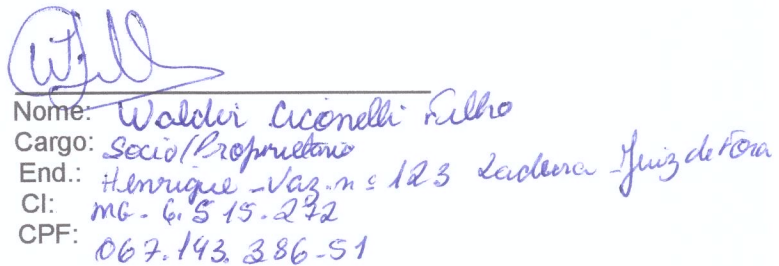 Nome: Waldir Ciconelli Filho
Cargo: Socio/Proprietario
End.: Henrique - Vaz - nº 123 Ladeira - Juiz de Fora
CI: MG - 6.515.272
CPF: 067.143.386-51